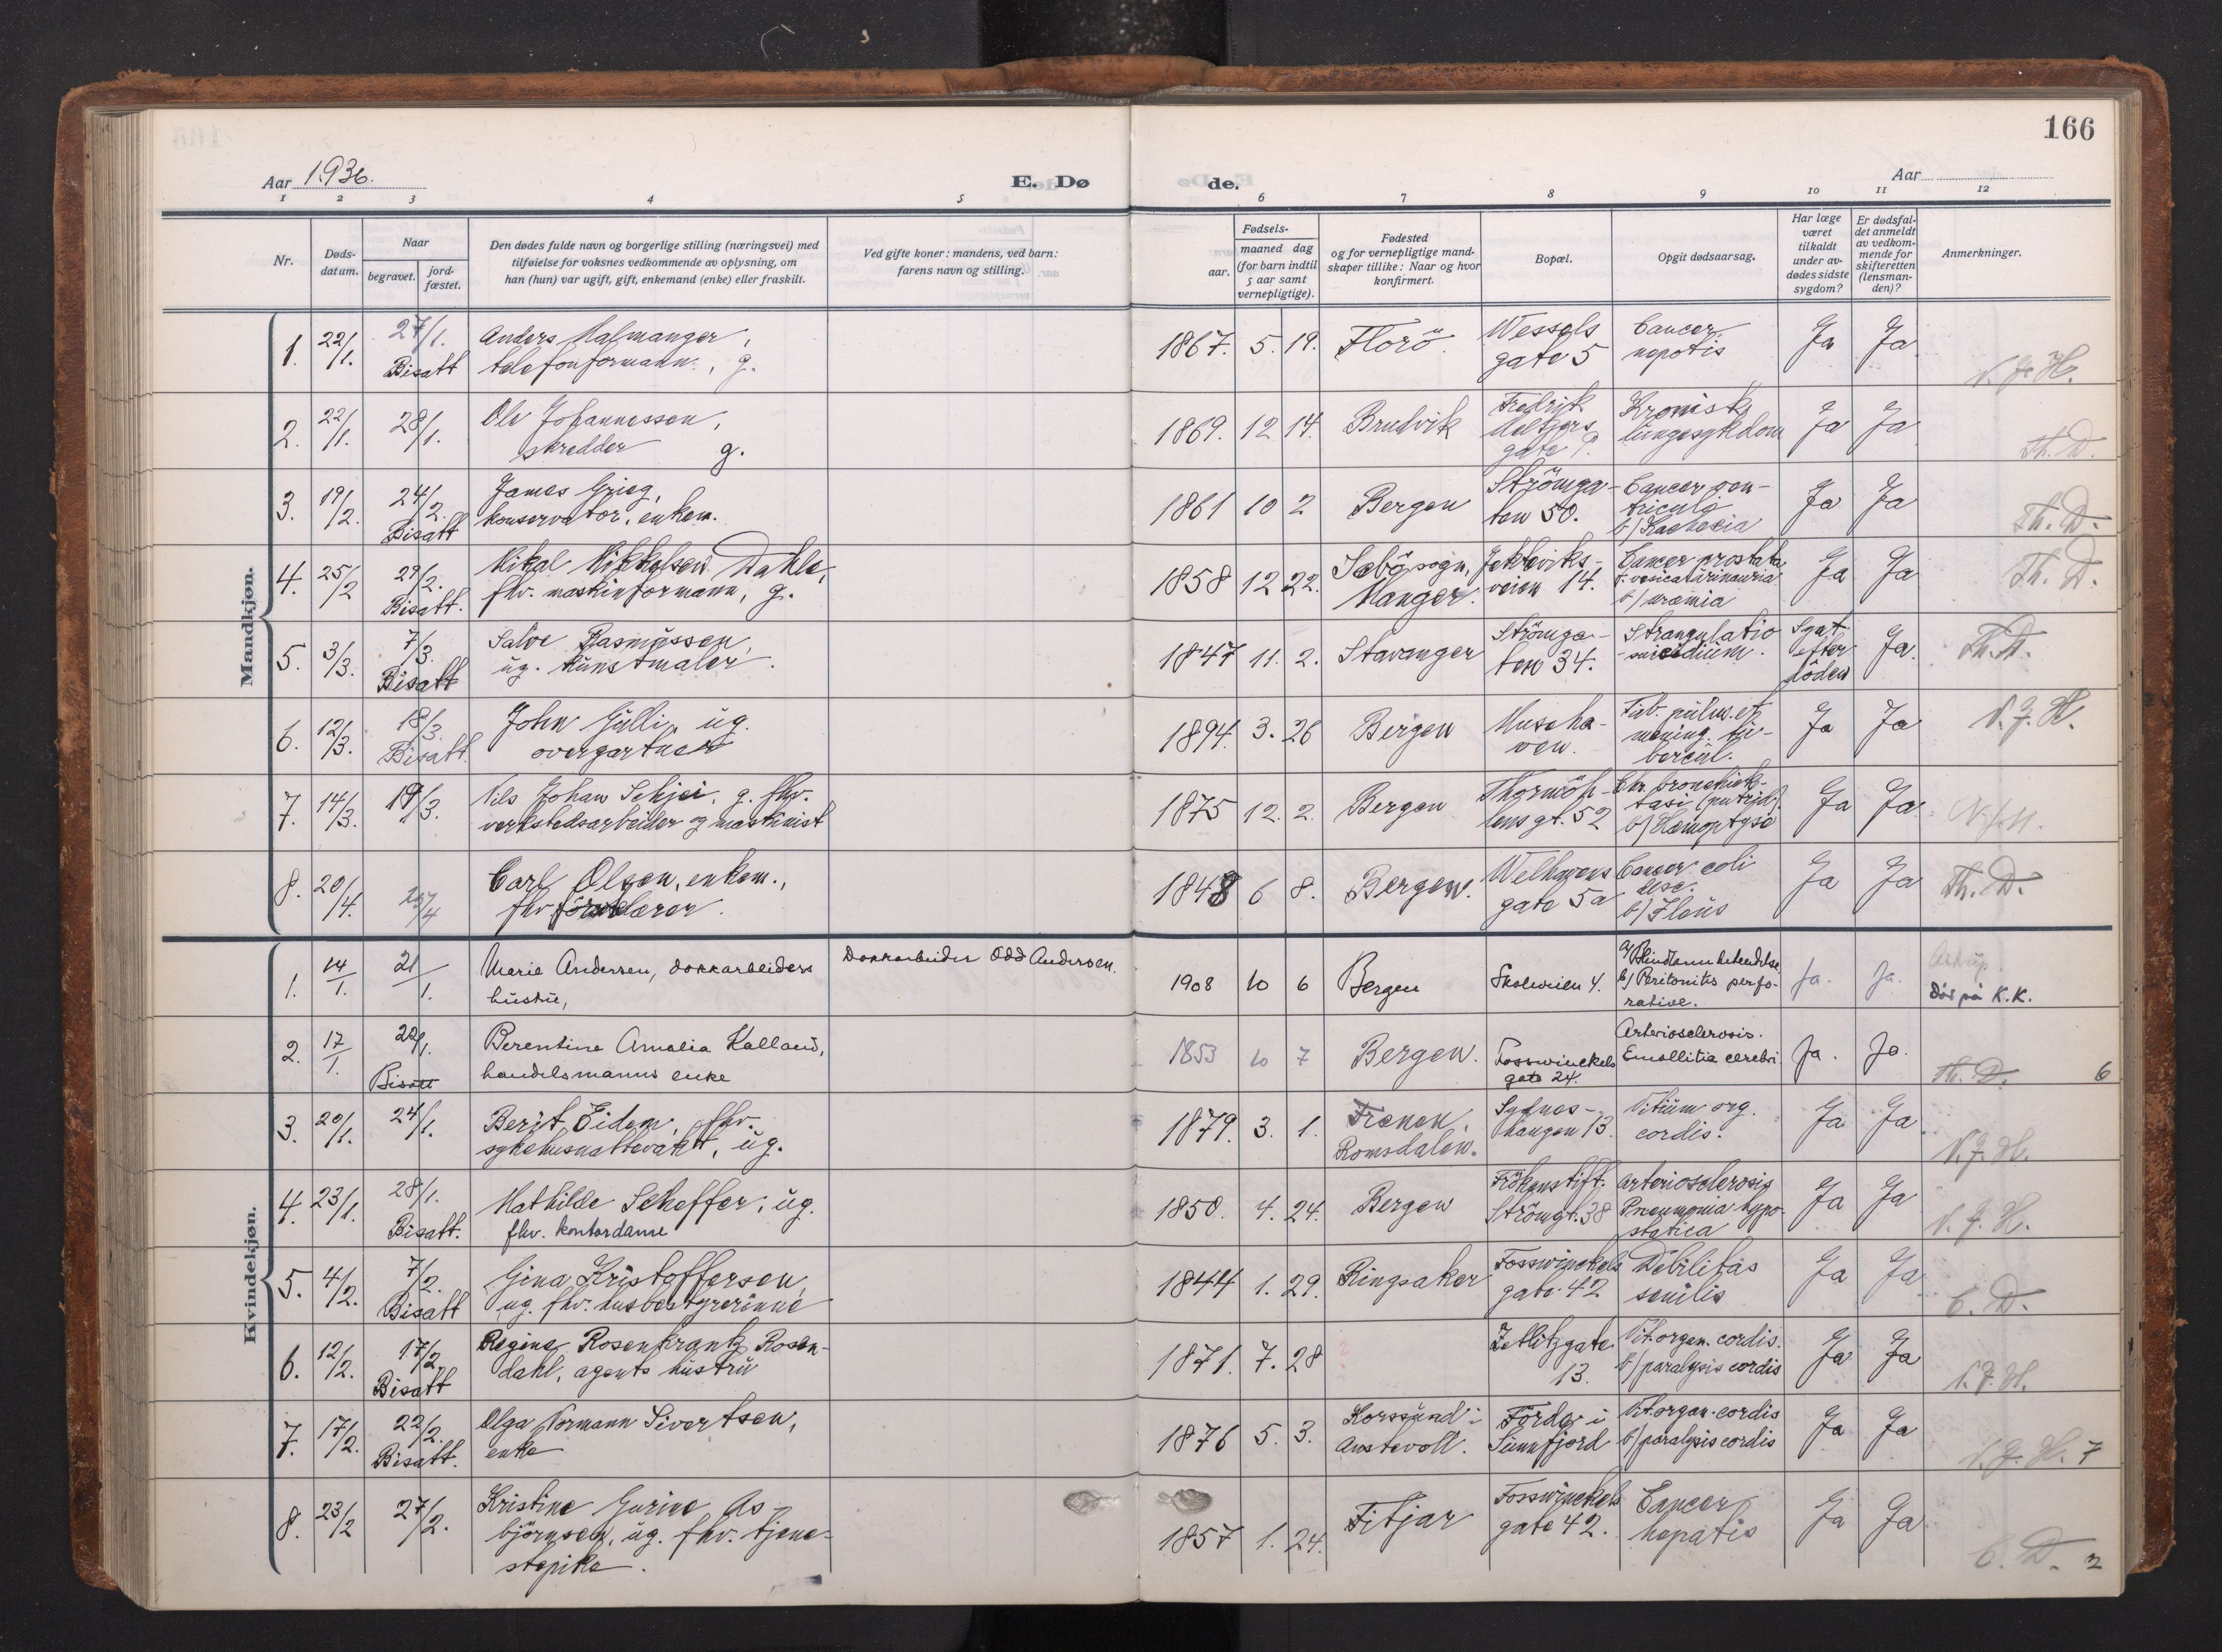 166
Aar 1936.
E. Døde.
Aar
1 2 3 4 5 6 7 8 9 10 11 12
Nr.
Døds-
datum.
Naar
begravet.
jord-
fæstet.
Den dødes fulde navn og borgerlige stilling (næringsvei) med
tilføielse for voksnes vedkommende av oplysning, om
han (hun) var ugift, gift, enkemand (enke) eller fraskilt.
Ved gifte koner: mandens, ved barn:
farens navn og stilling.
Fødsels-
aar.
maaned dag
(for barn indtil
5 aar samt
vernepligtige).
Fødested
og for vernepligtige mand-
skaper tillike: Naar og hvor
konfirmert.
Bopæl.
Opgit dødsaarsag.
Har læge
været
tilkaldt
under av-
dødes sidste
sygdom?
Er dødsfal-
det anmeldt
av vedkom-
mende for
skifteretten
(lensman-
den)?
Anmerkninger.
Mandkjøn.
1. 22/1. 27/1. Bisatt
Anders Malmanger,
telefonformann, g.
1867. 5. 19. Florö.
Wessels
gate 5
Cancer
Ja Ja
N. J. H.
2. 22/1. 28/1.
Ole Johannessen,
skredder g.
1869. 12 14. Bruvik
Fredrik
Meltzers
gate 9.
Kronisk
lungesykdom
Ja Ja
Th. D.
3. 19/2. 24/2. Bisatt
James Grieg,
konservator, enkem.
1861 10 2 Bergen
Strömga-
ten 50.
Cancer ven-
triculi
b/ Kachexia
Ja Ja
Th. D.
4. 25/2 29/2. Bisatt.
Mikal Mikkelsen Dahle,
fhv. maskinformann, g.
1858 12 22.
Sæbö sogn,
Manger.
Jekteviks-
veien 14.
Cancer prostata
b/ uræmia
Ja Ja
Th. D.
5. 3/3. 7/3. Bisatt
Salve Rasmussen,
ug. kunstmaler.
1847 11. 2. Stavanger
Strömga-
ten 34.
Strangulatio
- suicidium.
Synt
efter
döden
Ja.
Th. D.
6. 12/3. 18/3. Bisatt.
John Gulli, ug.
overgartner
1894. 3. 26 Bergen
Museha-
ven.
Tub. pulm. et
mening. tu-
bercul.
Ja Ja
N. J. H.
7. 14/3. 19/3.
Nils Johan Schjei, g. fhv.
verkstedsarbeider og maskinist
1875 12. 2. Bergen
Thormöh-
lens gt. 52
Chr. bronchiek-
tasi (putrid).
b/ Hæmoptyse
Ja Ja
N. J. H.
8. 20/4.
Carl Olsen, enkem.,
fhv
1848 6 8. Bergen.
Welhavens
gate 5a
Cancer coli
desc.
b/ Ileus
Ja Ja
Th. D.
Kvindekjøn.
1. 14/1. 21/1.
Marie Andersen, dokkarbeiders
hustru,
Dokkarbeider Odd Andersen.
1908 10 6 Bergen
Skoleveien 4.
a/ Blindtarmbetendelse
b/ Peritonitis perfo-
rative.
Ja. Ja.
Död på K.K.
2. 17/1. 22/1. Bisatt
Berentine Amalia Kalland,
handelsmanns enke
1853 10 7 Bergen.
Fosswinckels
gate 24.
Arteriosclerosis.
Emollitia cerebri.
Ja. Ja.
Th. D. 6
3. 20/1. 24/1.
Berit Eidem, fhv.
sykehusnattevakt, ug.
1879. 3. 1.
Frænen,
Romsdalen.
Sydnes-
haugen 13.
Vitium org.
cordis.
Ja Ja
N. J. H.
4. 23/1. 28/1. Bisatt.
Mathilde Scheffer, ug.
fhv. kontordame
1850. 4. 24. Bergen
Frökenstift.
Strömgt. 38
Arteriosclerosis
Pneumonia hypo-
statica
Ja Ja
N. J. H.
5. 4/2. 7/2. Bisatt
Gina Kristoffersen,
ug. fhv. husbestyrerinne
1844 1. 29. Ringsaker
Fosswinckels
gate 42
Debilitas
senilis
Ja Ja
C. D.
6. 12/2. 17/2. Bisatt
Regine Rosenkrantz Rosen-
dahl, agents hustru
1871. 7. 28
Zetlitzgate
13.
Vit. organ. cordis.
b/ paralysis cordis
Ja Ja
N. J. H.
7. 17/2. 22/2. Bisatt.
Olga Normann Sivertsen,
enke
1876 5. 3.
Korssund i
Austevoll.
Förde i
Sunnfjord
Vit. organ. cordis
b/ paralysis cordis
Ja Ja
N. J. H. 7
8. 23/2 27/2.
Kristine Gurine As-
björnsen, ug. fhv. tjene-
stepike.
1857 1. 24. Fitjar
Fosswinckels
gate 42.
Cancer
hepatis
Ja Ja
C. D. 2